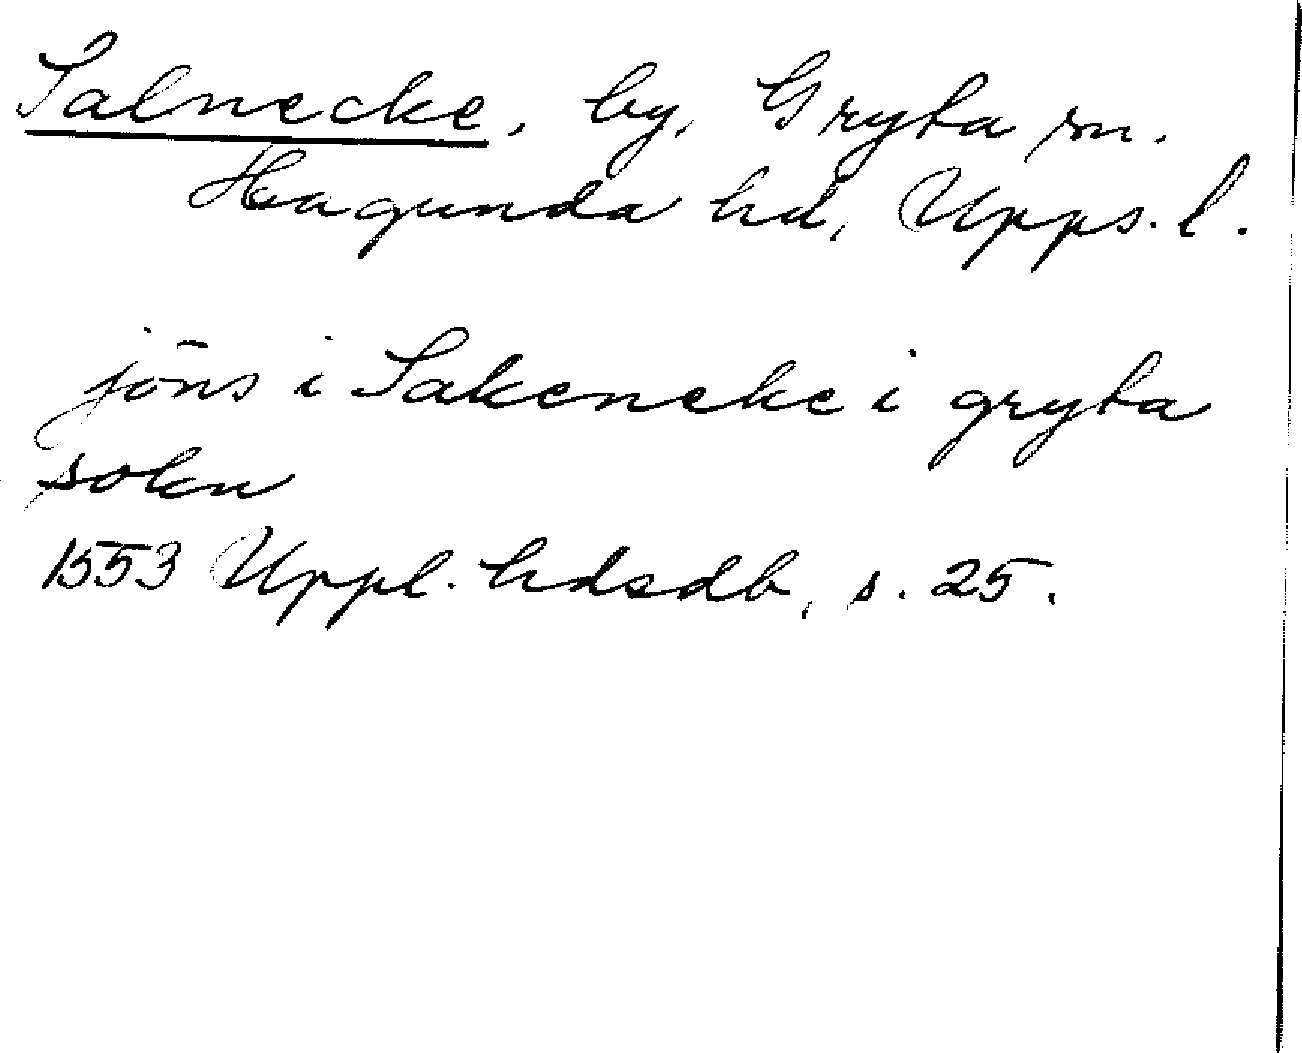 Salnecke, by, Gryta sn.
Hagunda hd, Upps. l.
jöns i Sakeneke i gryta
sokn
1553 Uppl. hdsdb, s. 25.